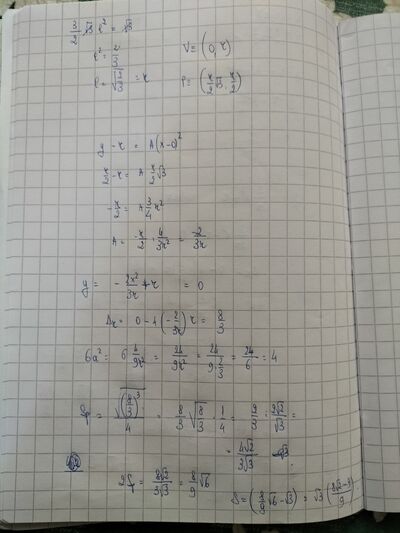 3/2 √3 ℓ² = √3
ℓ² = 2/3 V ≡ (0, r)
ℓ = √(2/3) = r P ≡ (r/2 √3, r/2)
y - r = A(x-0)²
r/2 - r = A r/2 √3
-r/2 = A 3/4 r²
A = -r/2 · 4/3r² = 2/3r
y = -2x²/3r + r = 0
Δr = 0 - 4(-2/3r) r = 8/3
6a² = 6 4/9r² = 24/9r² = 24/9·2/3 = 24/6 = 4
Sp = √(8/3)³/4 = 8/3 √8/3 · 1/4 = 2/3 · 2√2/√3 =
= 4√2/3√3
2Sp = 8√2/3√3 = 8/9 √6
S = (8/9 √6 - √3) = √3 (8√2-9/9)